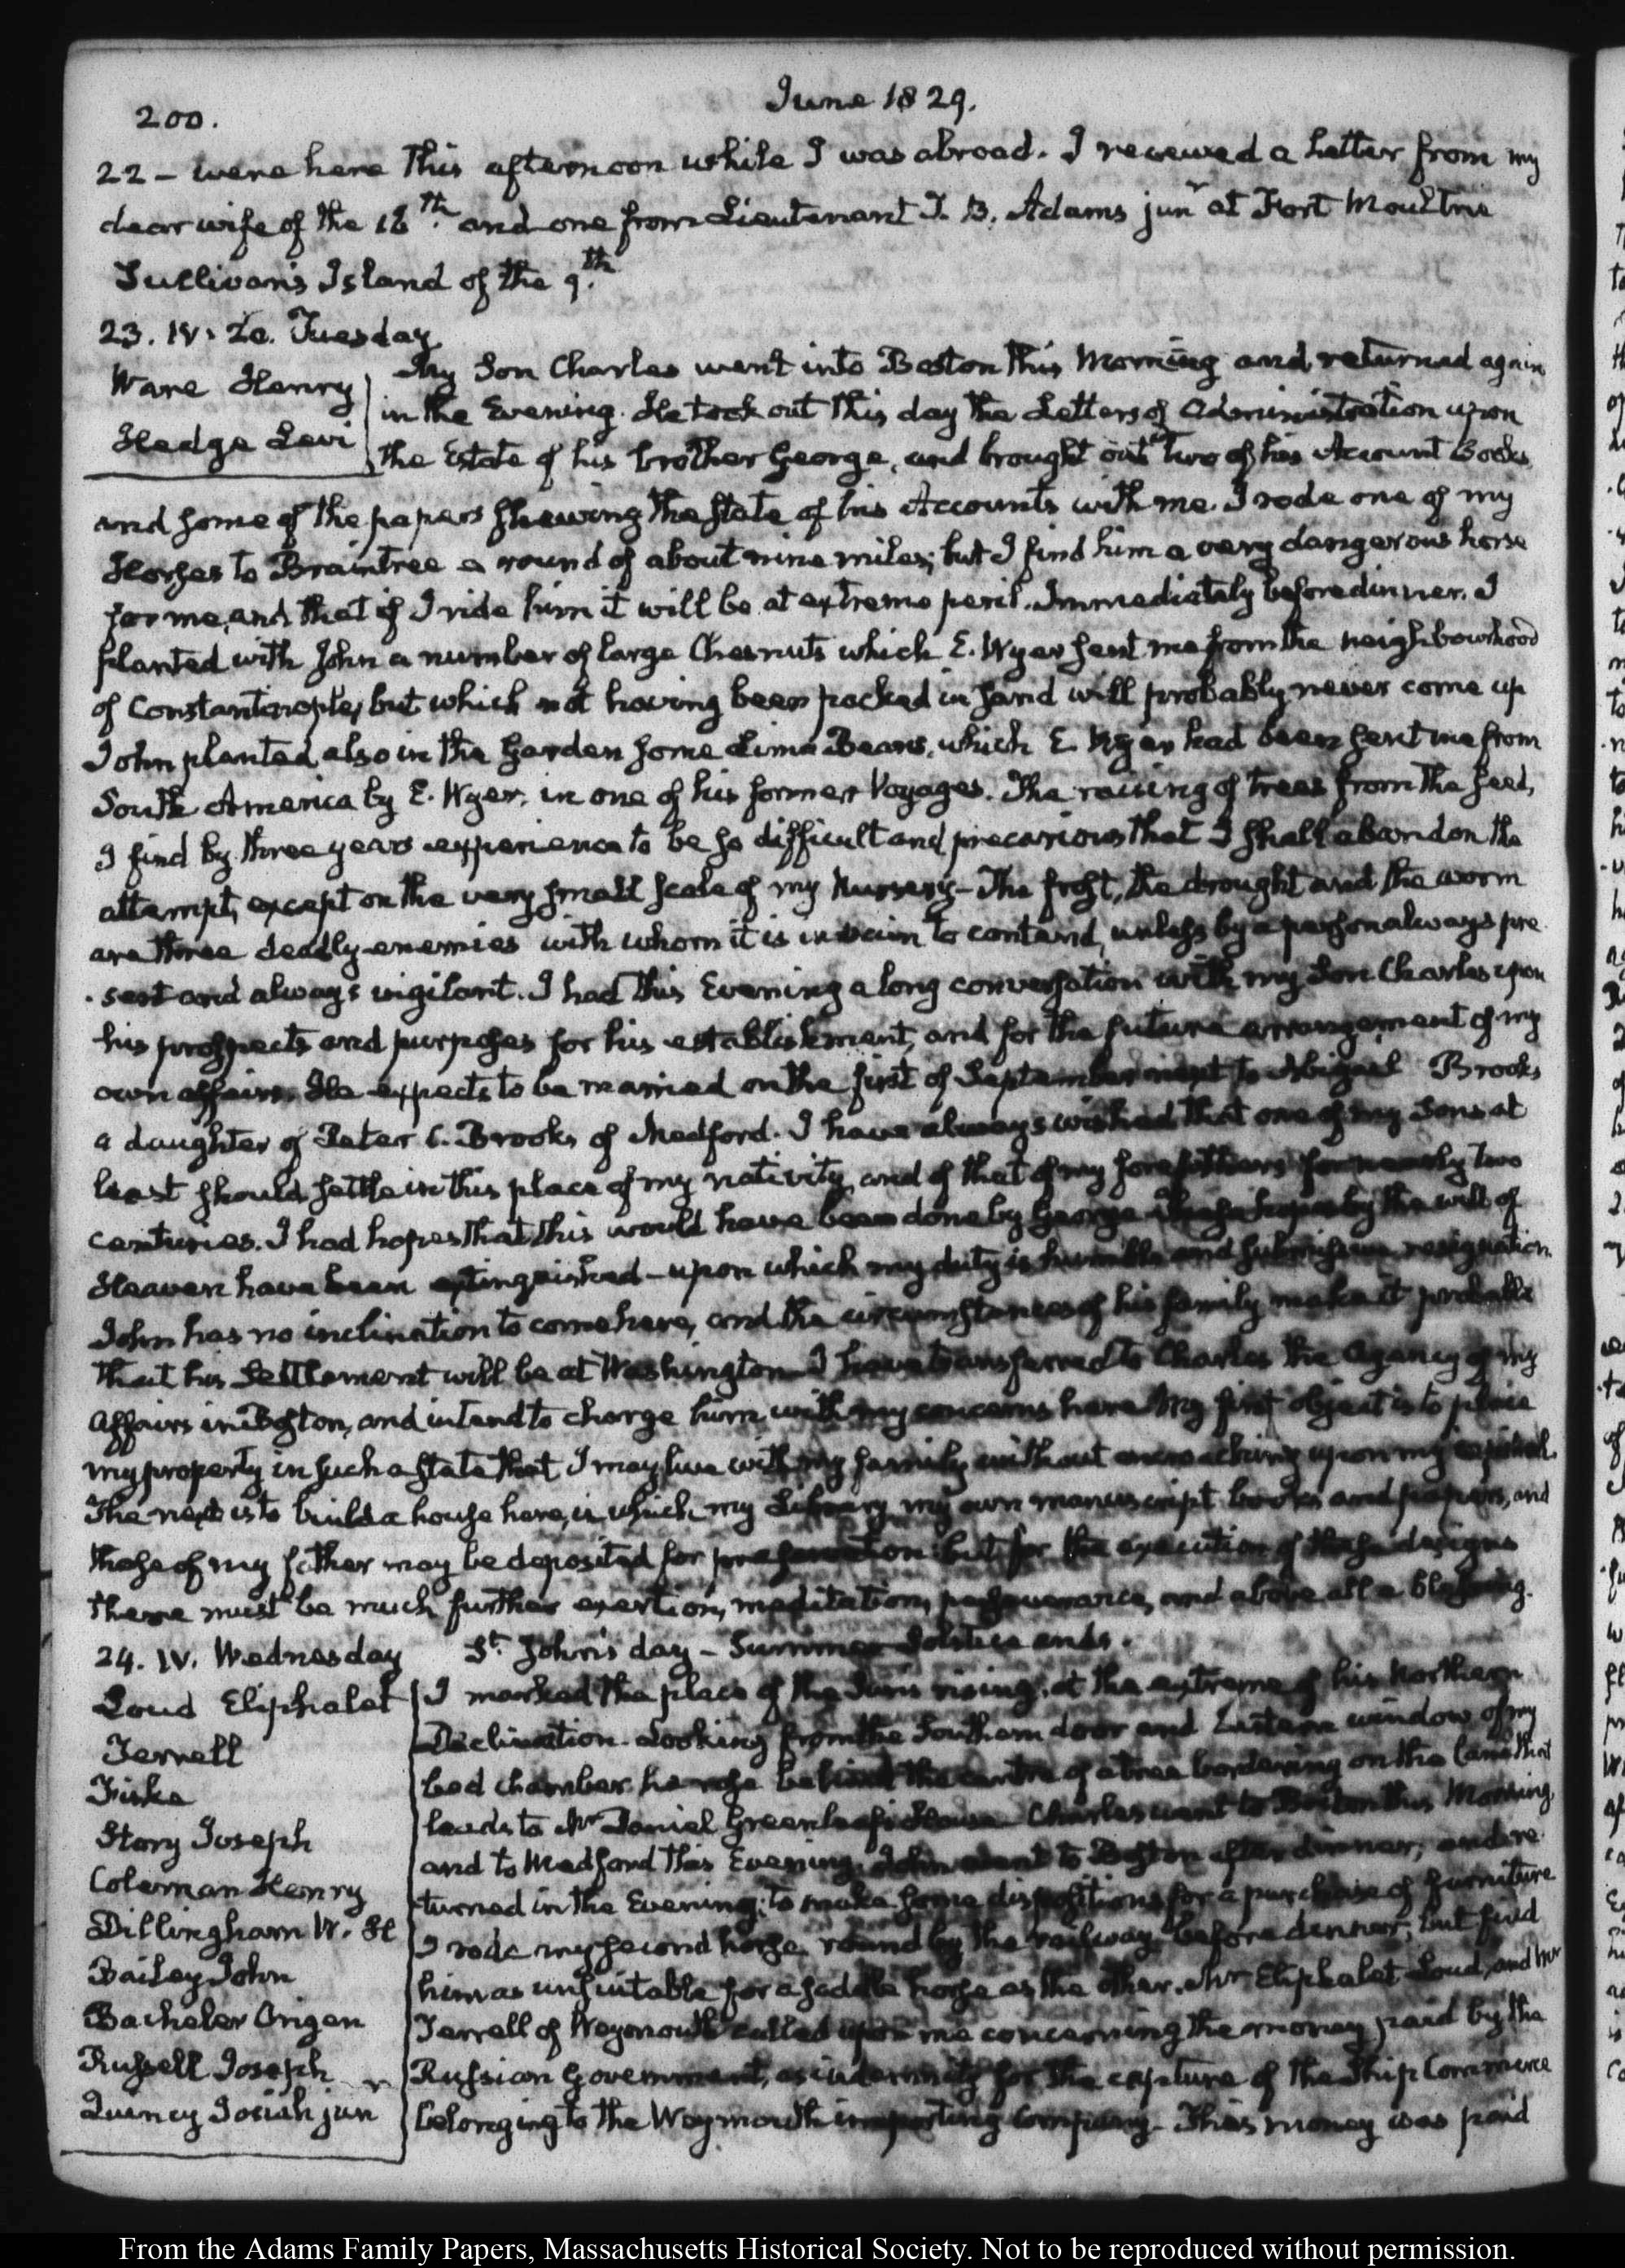 200.
June 1829.
22 - were here this afternoon while I was abroad. I received a Letter from my
dear wife of the 16th. and one from Lieutenant T. B. Adams junr at Fort Moultrie
Sullivan's Island of the 9th.
23. IV. Tuesday
Ware Henry
Hedge Levi
My Son Charles went into Boston this Morning and returned again
in the Evening. He took out this day the Letters of Administration upon
the Estate of his brother George, and brought out two of his Account Books
and some of the papers shewing the state of his Accounts with me. I rode one of my
Horses to Braintree a round of about nine miles; but I find him a very dangerous horse
for me, and that if I ride him it will be at extreme peril. Immediately before dinner. I
planted with John a number of large Chesnuts which E. Wyer sent me from the neighbourhood
of Constantinople, but which not having been packed in sand will probably never come up
John planted also in the Garden some Lima Beans, which E Wyer had been sent me from
South America by E. Wyer, in one of his former Voyages. The raising of trees from the seed,
I find by three years experience to be so difficult and precarious that I shall abandon the
attempt, except on the very small scale of my Nursery - The frost, the drought and the worm
are three deadly enemies with whom it is in vain to contend, unless by a person always pre
-sent and always vigilant. I had this Evening a long conversation with my Son Charles upon
his prospects and purposes for his establishment, and for the future arrangement of my
own affairs. He expects to be married on the first of September next to Abigail Brooks
a daughter of Peter C. Brooks of Medford. I have always wished that one of my Sons at
least should settle in this place of my nativity, and of that of my forefathers for nearly two
centuries. I had hopes that this would have been done by George. These hopes by the will of
Heaven have been extinguished - upon which my duty is humble and submissive resignation.
John has no inclination to come here, and the circumstances of his family make it probable
that his Settlement will be at Washington - I have transferred to Charles the Agency of my
Affairs in Boston, and intend to charge him with my concerns here. My first object is to place
my property in such a state that I may live with my family without encroaching upon my capital.
The next is to build a house here, in which my Library, my own manuscript books and papers, and
those of my father may be deposited for preservation. but for the execution of these designs
there must be much further exertion, meditation, perseverance, and above all a blessing.
24. IV. Wednesday St. John's day - Summer Solstice ends.
Loud Eliphalet
Terrell
Fiske
Story Joseph
Coleman Henry
Dillingham W. H
Bailey John
Bacheler Origen
Russell Joseph
Quincy Josiah junr
I marked the place of the Sun's rising, at the extreme of his Northern
Declination. Looking from the Southern door and Eastern window of my
bed chamber. he rose behind the centre of a tree bordering on the lane that
leads to Mr Daniel Greenleaf's House. Charles went to Boston this Morning,
and to Medford this Evening. John went to Boston after dinner, and re
turned in the Evening; to make some dispositions for a purchase of furniture
I rode my second horse round by the railway before dinner, but find
him as unsuitable for a saddle horse as the other. Mr Eliphalet Loud, and Mr
Terrell of Weymouth called upon me concerning the money paid by the
Russian Government, as indemnity for the capture of the Ship Commerce
belonging to the Weymouth importing Company - This money was paid
From the Adams Family Papers, Massachusetts Historical Society. Not to be reproduced without permission.